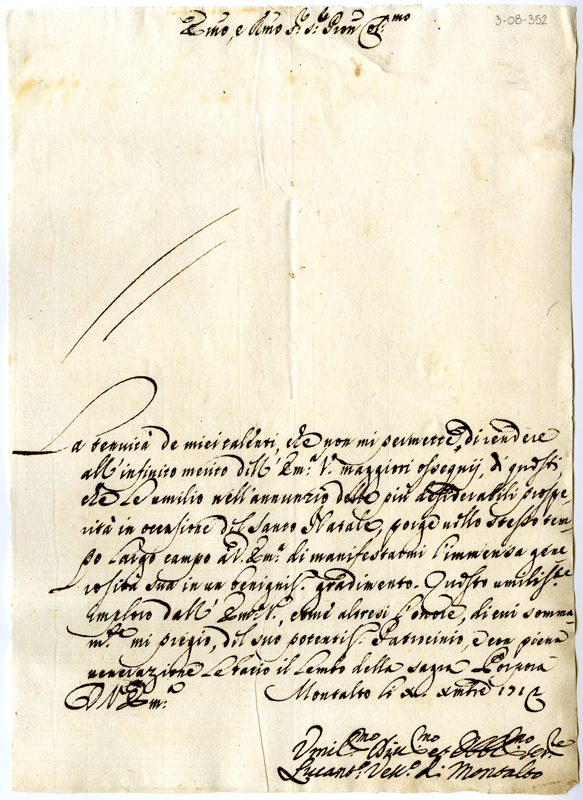 3-08-352
Emo, e Rmo Sr. Sr. Pron Col.mo
La tenuità de miei talenti, che non mi permette, di rendere
all'infinito merito dell'Em.a V. maggiori ossequij, di questi,
che Le umilio nell'annunzio delle più desiderabili prospe-
rità in occasione del Santo Natale, porge nello stesso tem-
po largo campo a V. Em.a di manifestarmi l'immensa gene
rosità sua in un benignis.o gradimento. Questo umilis.te
imploro dall'Em.a V., come altresì l'onore, di cui somma-
m.te mi pregio, del suo potentis.o Patrocinio, e con piena
venerazione Le bacio il Lembo della sagra Porpora
D V. Em.a Montalto li Xmbre 1712
Umil.mo Div.mo et Obbl.mo Ser.re
Lucant.o Vesc.o di Montalto